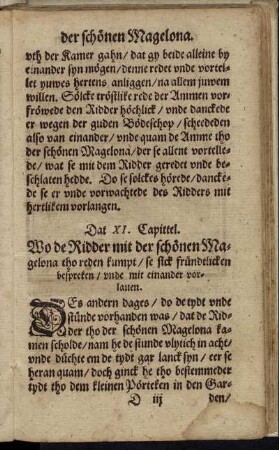 der schönen Magelona.
vth der Kamer gahn/ dat gy beide alleine by
einander syn mögen/ denne redet vnde vortel-
let yuwes hertens anliggen/ na allem juwem
willen. Sölcke tröstlike rede der Ammen vor-
fröwede den Ridder höchlick/ vnde danckede
er wegen der guden Bödeschop/ schededen
also van einander/ vnde quam de Amme tho
der schönen Magelona/ der se allent vortelle-
de/ wat se mit dem Ridder geredet vnde be-
schlaten hedde. Do se solckes hörede/ dancke-
de se er vnde vorwachtede des Ridders mit
hertlikem vorlangen.
Dat XI. Capittel.
Wo de Ridder mit der schönen Ma-
gelona tho reden kumpt/ se sick fründtlicken
bespreken/ vnde mit einander vor-
lauen.
DEs andern dages/ do de tydt vnde
stünde vorhanden was/ dat de Rid-
der tho der schönen Magelona ka-
men scholde/ nam he de stunde vlytich in acht/
vnde düchte em de tydt gar lanck syn/ eer se
heran quam/ doch ginck he tho bestemmeder
tydt tho dem kleinen Pörteken in den Gar-
D iij den/